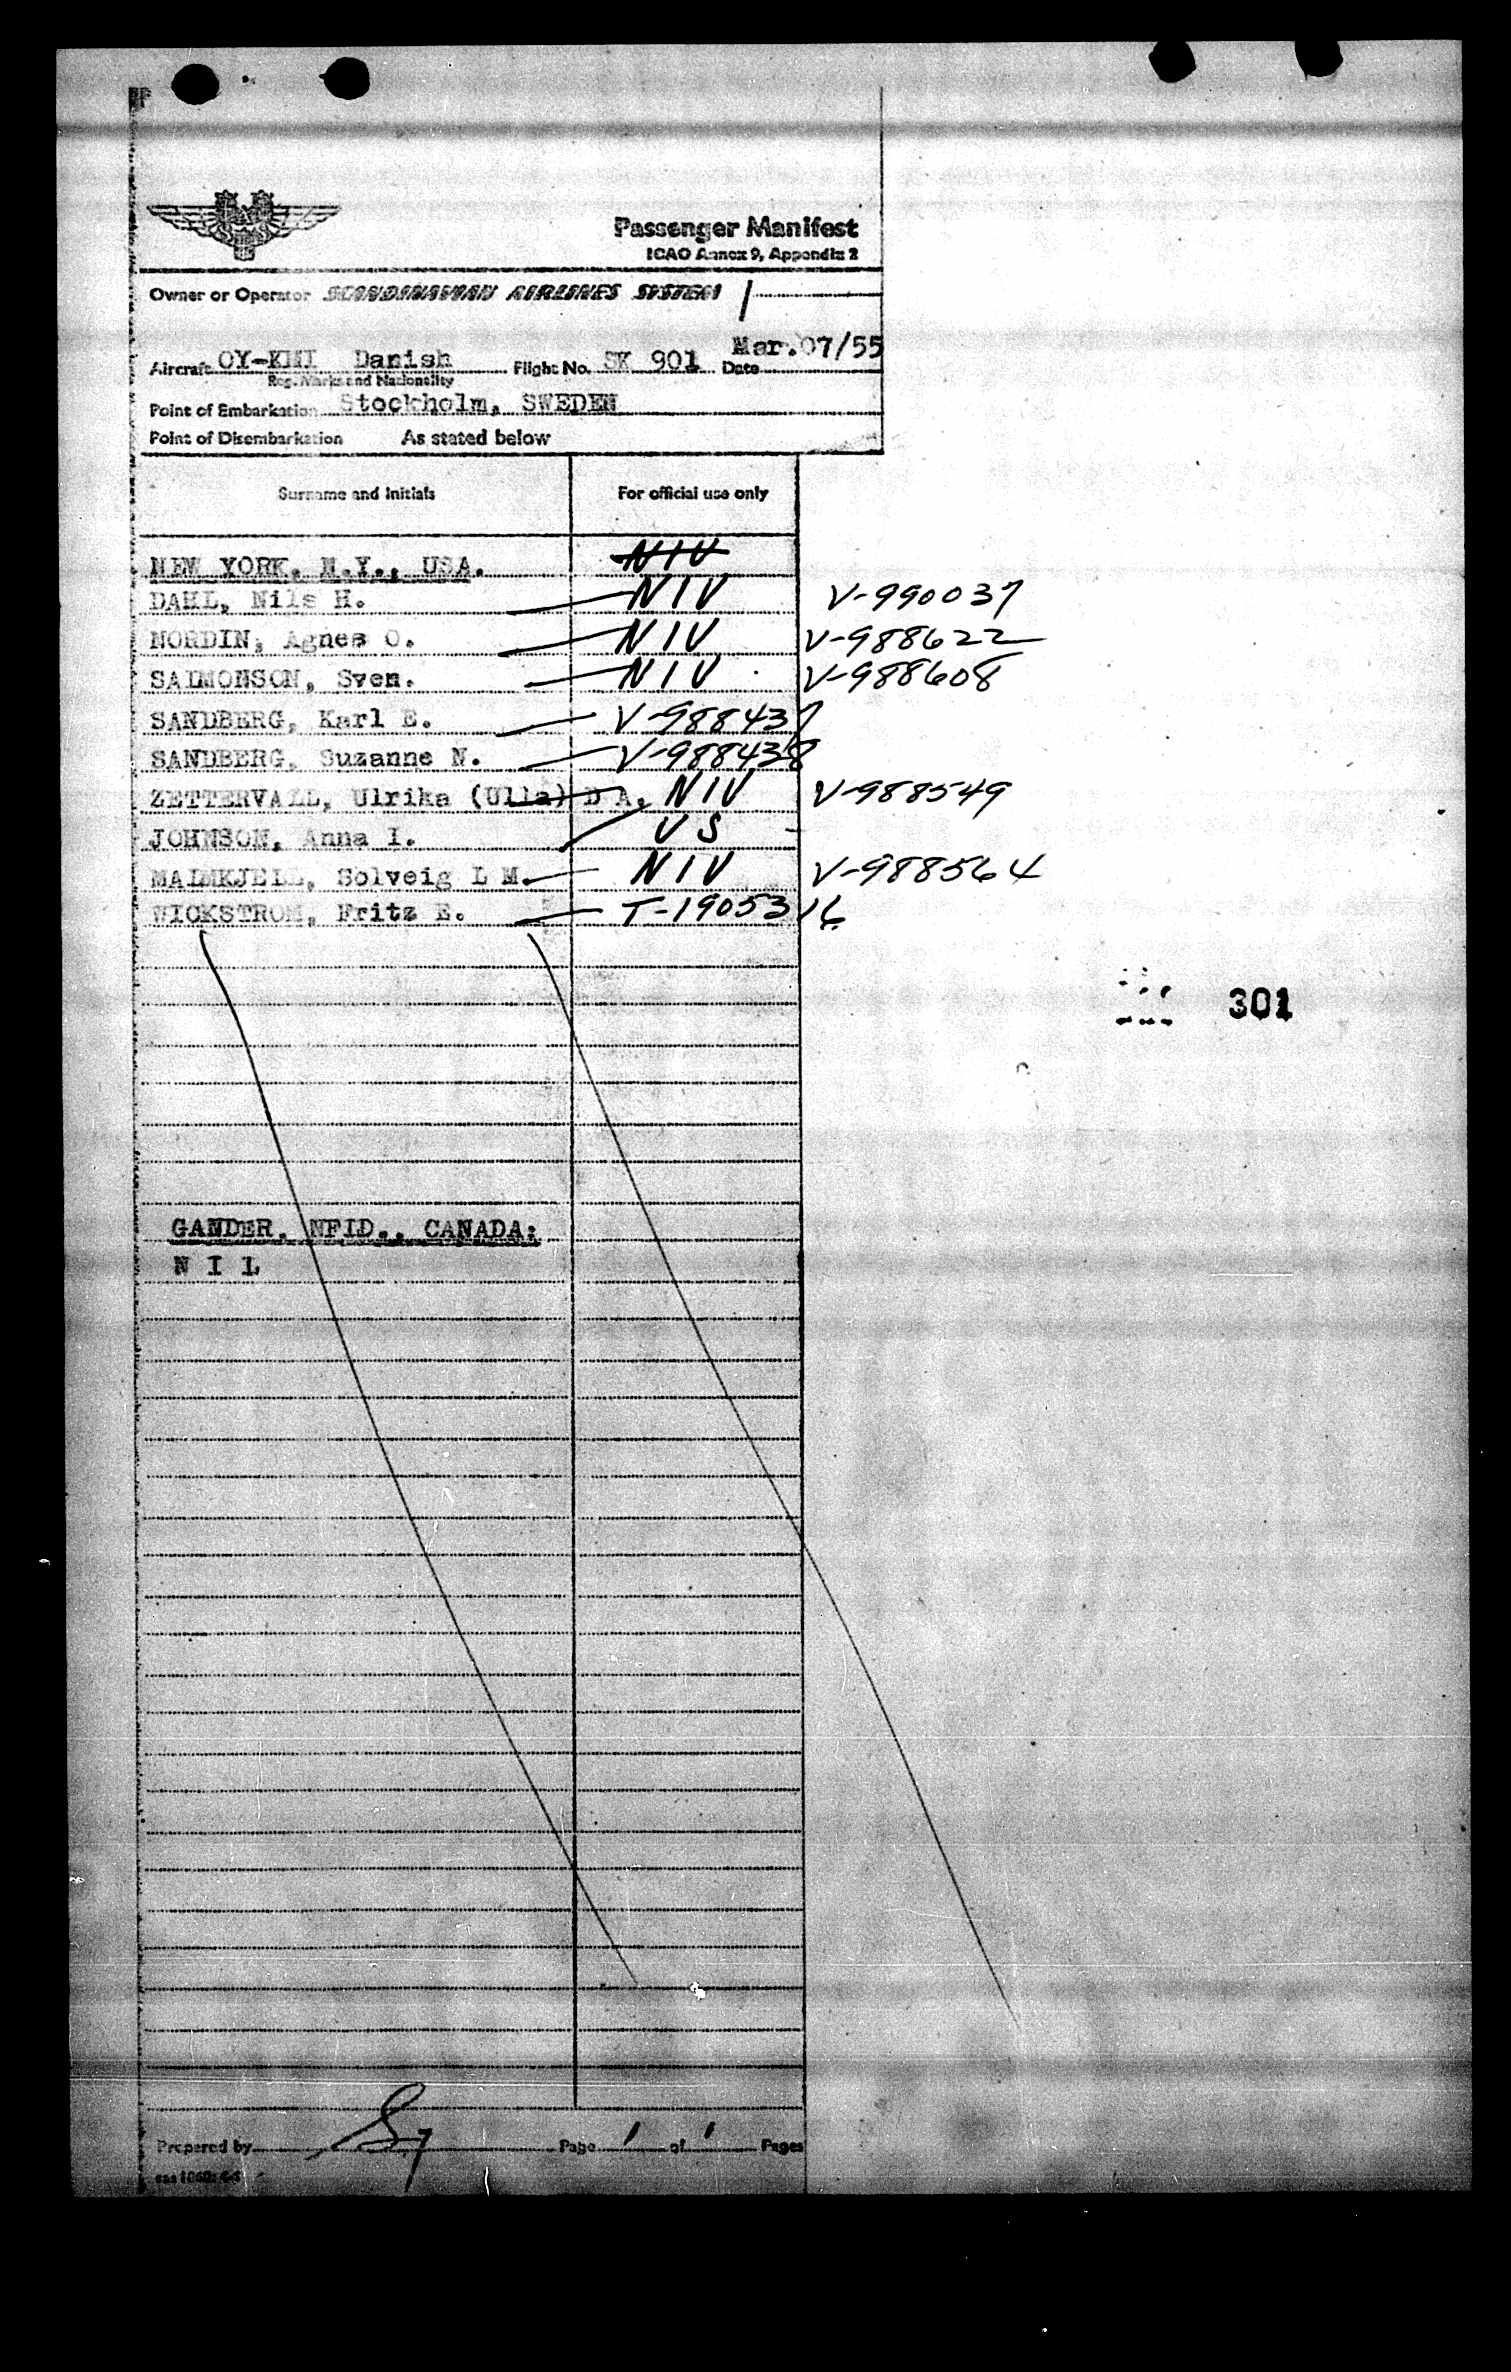 Passenger Manifest
ICAO Annex 9, Appendix 2
Owner or Operator SCANDINAVIAN AIRLINES SYSTEM
Aircraft OY-KMI Danish Flight No. SK 901 Date Mar. 07/55
Reg. Marks and Nationality
Point of Embarkation Stockholm, SWEDEN
Point of Disembarkation As stated below
Surname and Initials For official use only
NEW YORK, N.Y., USA. NIV
DAHL, Nils H. NIV V-990037
NORDIN, Agnes O. NIV V-988622
SALMONSON, Sven. NIV V-988608
SANDBERG, Karl E. V-988437
SANDBERG, Suzanne N. V-988438
ZETTERVALL, Ulrika (Ulla) D A. NIV V-988549
JOHNSON, Anna I. US
MALMKJELL, Solveig L M. NIV V-988564
WICKSTROM, Fritz E. T-1905316
301
GANDER, NFLD., CANADA:
N I L
Prepared by Page 1 of 1 Pages